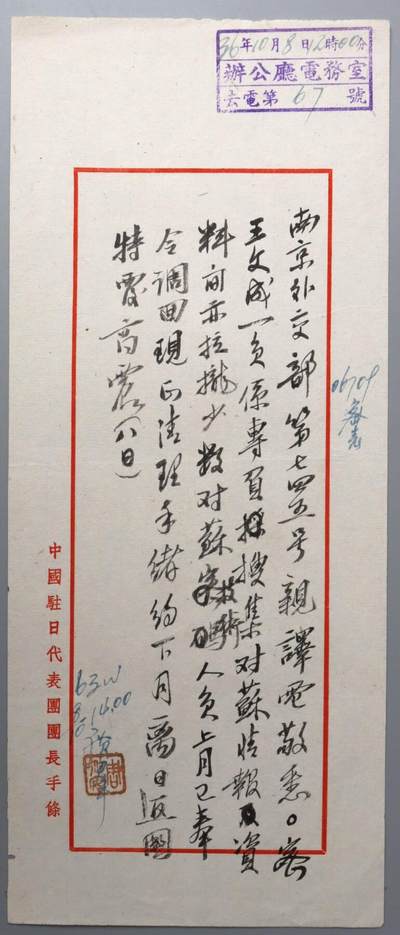 36年10月8日12時00分
辦公廳電務室
去電第67號
南京外交部第七四五号親譯電敬悉。密
王文成一員係專員搜集対蘇情報及資
料間亦拉攏少数对蘇技術人員上月已奉
令調回現正清理手續約下月離日返國
特電商震(八日)
63W
14.00
中國駐日代表團團長手條